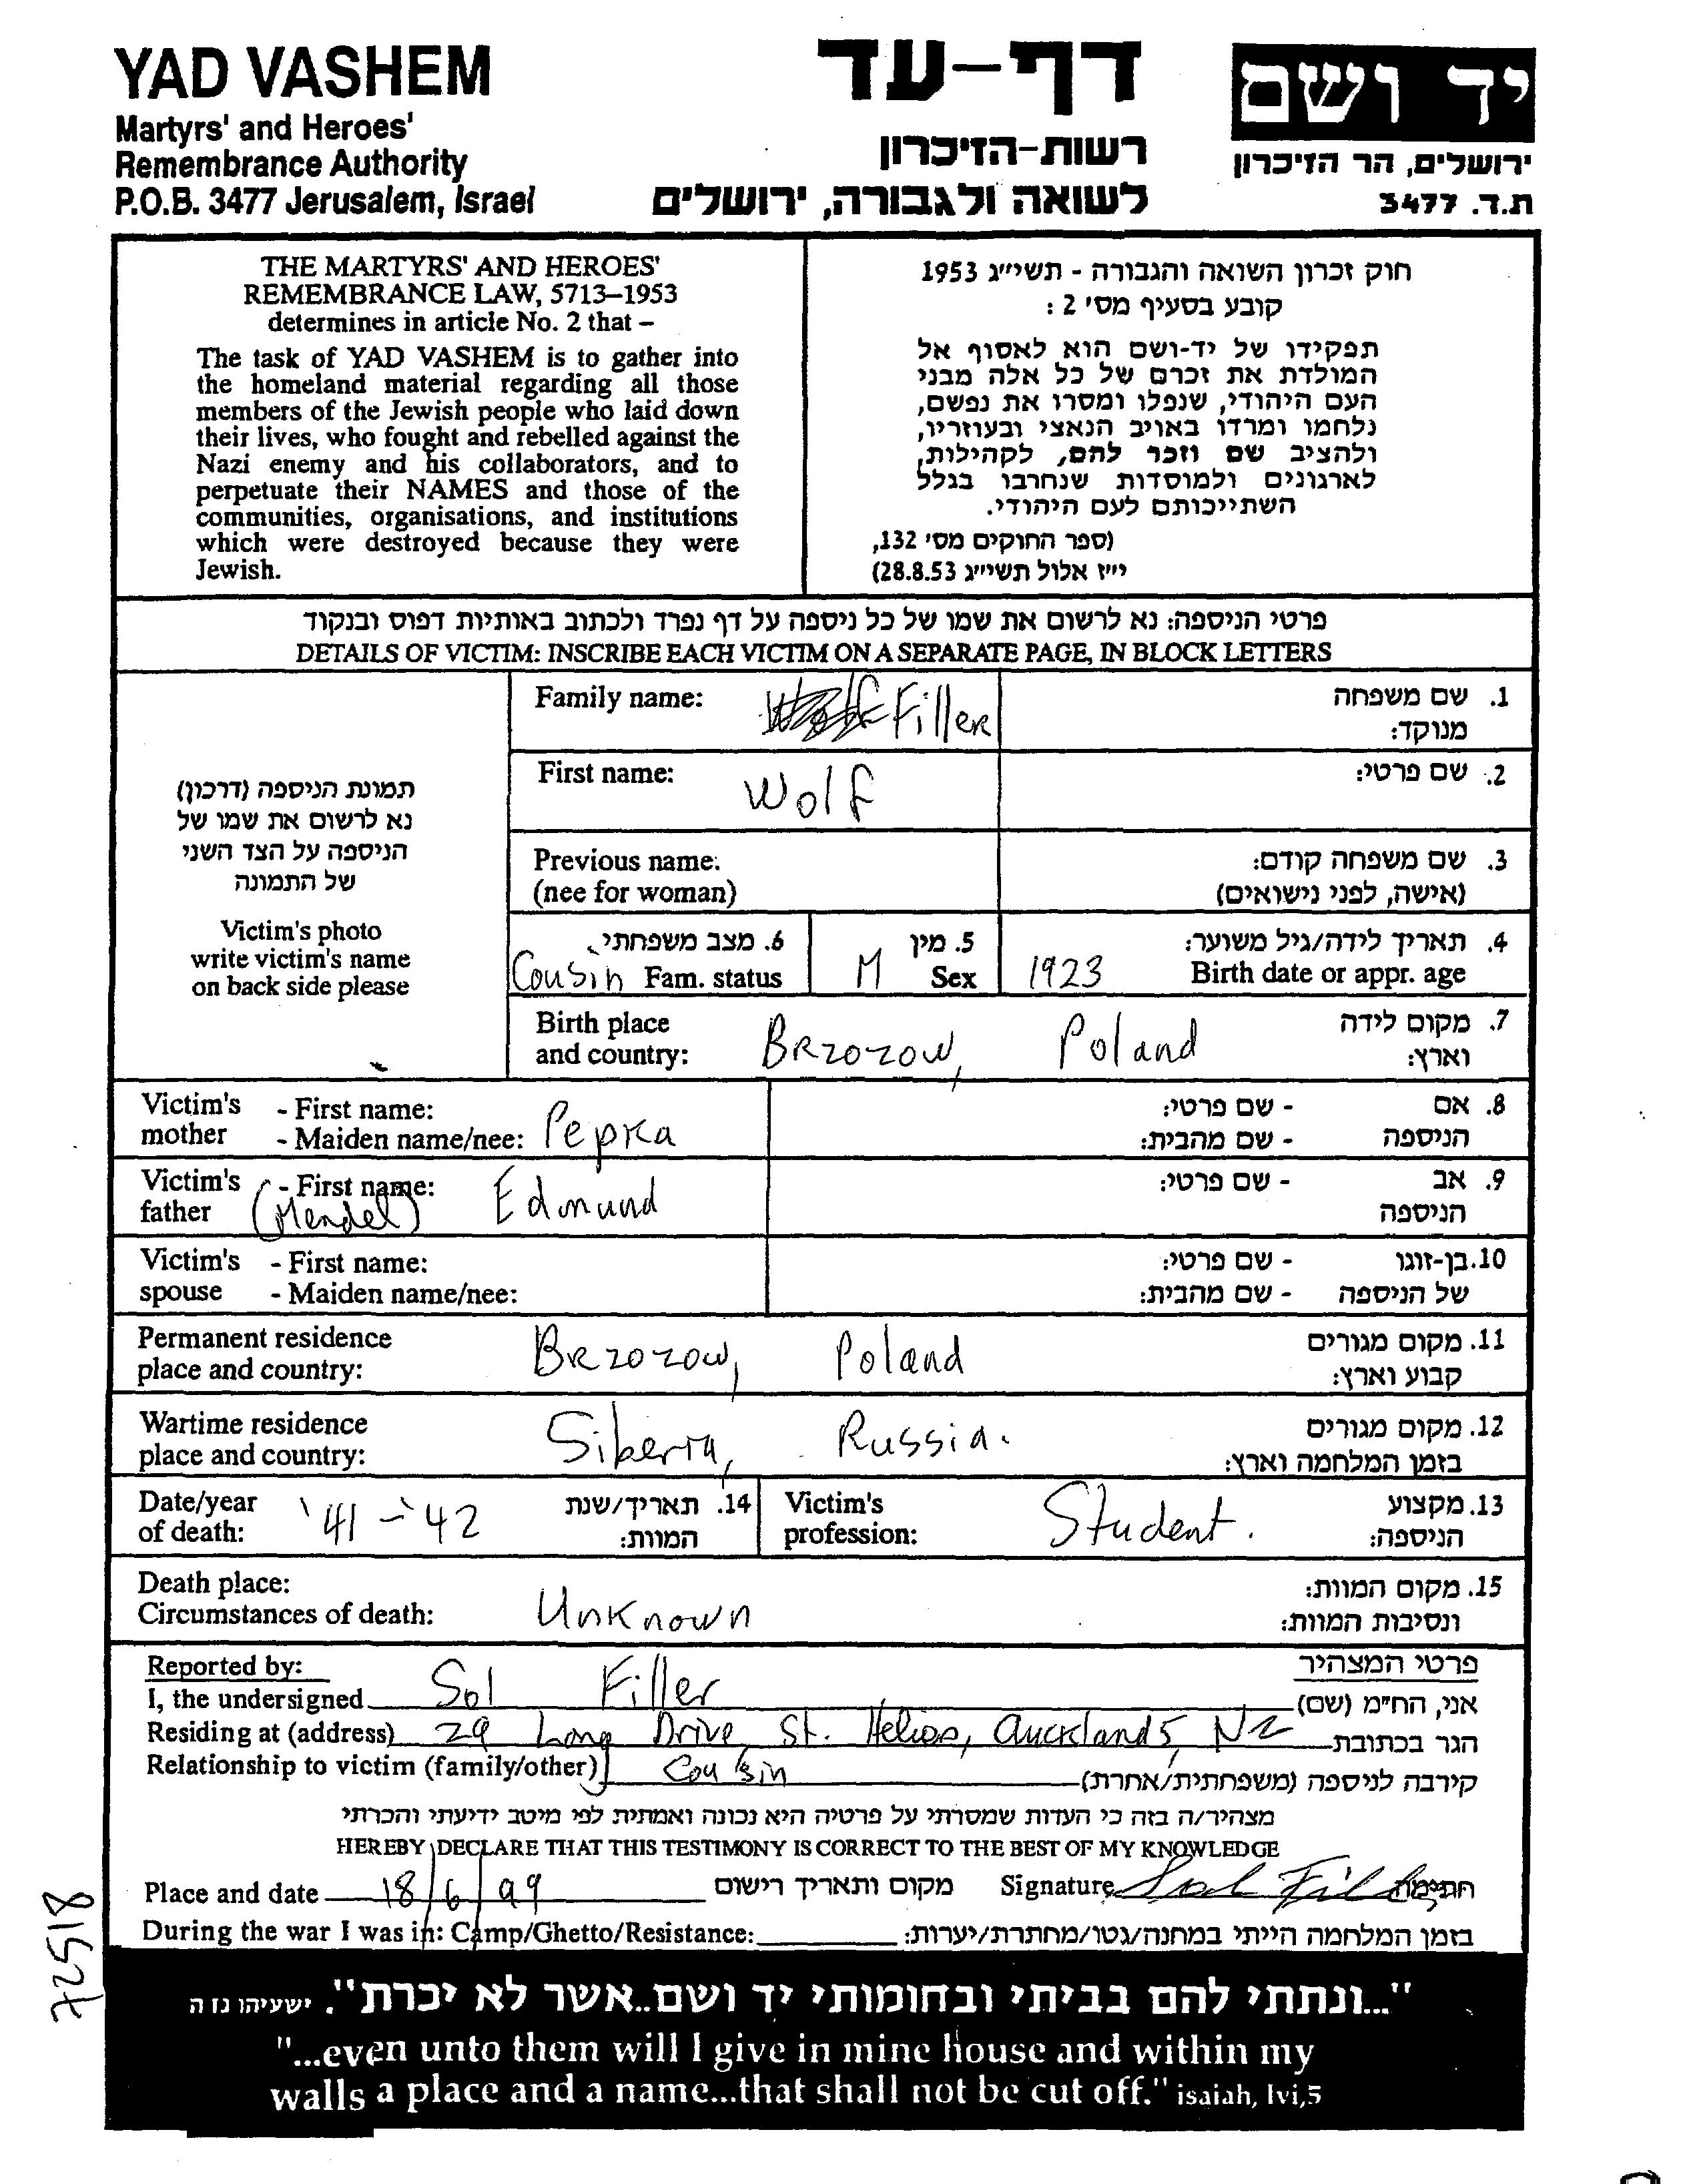 YAD VASHEM
Martyrs' and Heroes'
Remembrance Authority
P.O.B. 3477 Jerusalem, Israel
דף-עד
רשות-הזיכרון
לשואה ולגבורה, ירושלים
יד ושם
ירושלים, הר הזיכרון
ת.ד. 3477
THE MARTYRS' AND HEROES'
REMEMBRANCE LAW, 5713–1953
determines in article No. 2 that –
The task of YAD VASHEM is to gather into
the homeland material regarding all those
members of the Jewish people who laid down
their lives, who fought and rebelled against the
Nazi enemy and his collaborators, and to
perpetuate their NAMES and those of the
communities, organisations, and institutions
which were destroyed because they were
Jewish.
חוק זכרון השואה והגבורה - תשי״ג 1953
קובע בסעיף מס׳ 2 :
תפקידו של יד-ושם הוא לאסוף אל
המולדת את זכרם של כל אלה מבני
העם היהודי, שנפלו ומסרו את נפשם,
נלחמו ומרדו באויב הנאצי ובעוזריו,
ולהציב שם וזכר להם, לקהילות,
לארגונים ולמוסדות שנחרבו בגלל
השתייכותם לעם היהודי.
(ספר החוקים מס׳ 132,
י״ז אלול תשי״ג 28.8.53)
פרטי הניספה: נא לרשום את שמו של כל ניספה על דף נפרד ולכתוב באותיות דפוס ובנקוד
DETAILS OF VICTIM: INSCRIBE EACH VICTIM ON A SEPARATE PAGE, IN BLOCK LETTERS
תמונת הניספה (דרכון)
נא לרשום את שמו של
הניספה על הצד השני
של התמונה
Victim's photo
write victim's name
on back side please
Family name: Filler 1. שם משפחה
מנוקד:
First name: Wolf 2. שם פרטי:
Previous name: 3. שם משפחה קודם:
(nee for woman) (אישה, לפני נישואים)
6. מצב משפחתי 5. מין 4. תאריך לידה/גיל משוער:
Cousin Fam. status M Sex 1923 Birth date or appr. age
Birth place 7. מקום לידה
and country: Brzozow, Poland וארץ:
Victim's - First name: - שם פרטי: 8. אם
mother - Maiden name/nee: Pepka - שם מהבית: הניספה
Victim's - First name: Edmund - שם פרטי: 9. אב
father (Mendel) הניספה
Victim's - First name: - שם פרטי: 10. בן-זוגו
spouse - Maiden name/nee: - שם מהבית: של הניספה
Permanent residence 11. מקום מגורים
place and country: Brzozow, Poland קבוע וארץ:
Wartime residence 12. מקום מגורים
place and country: Siberia, Russia. בזמן המלחמה וארץ:
Date/year 14. תאריך/שנת Victim's 13. מקצוע
of death: '41 - '42 המוות: profession: Student. הניספה:
Death place: 15. מקום המוות:
Circumstances of death: Unknown ונסיבות המוות:
Reported by: פרטי המצהיר
I, the undersigned Sol Filler אני, הח״מ (שם)
Residing at (address) 29 Long Drive, St. Helios, Auckland 5, NZ הגר בכתובת
Relationship to victim (family/other) Cousin קירבה לניספה (משפחתית/אחרת)
מצהיר/ה בזה כי העדות שמסרתי על פרטיה היא נכונה ואמתית לפי מיטב ידיעתי והכרתי
HEREBY DECLARE THAT THIS TESTIMONY IS CORRECT TO THE BEST OF MY KNOWLEDGE
Place and date 18/6/99 מקום ותאריך רישום Signature Sol Filler חתימה
During the war I was in: Camp/Ghetto/Resistance: בזמן המלחמה הייתי במחנה/גטו/מחתרת/יערות:
72518
"...ונתתי להם בביתי ובחומותי יד ושם..אשר לא יכרת". ישעיהו נז ה
"...even unto them will I give in mine house and within my
walls a place and a name...that shall not be cut off." isaiah, lvi,5